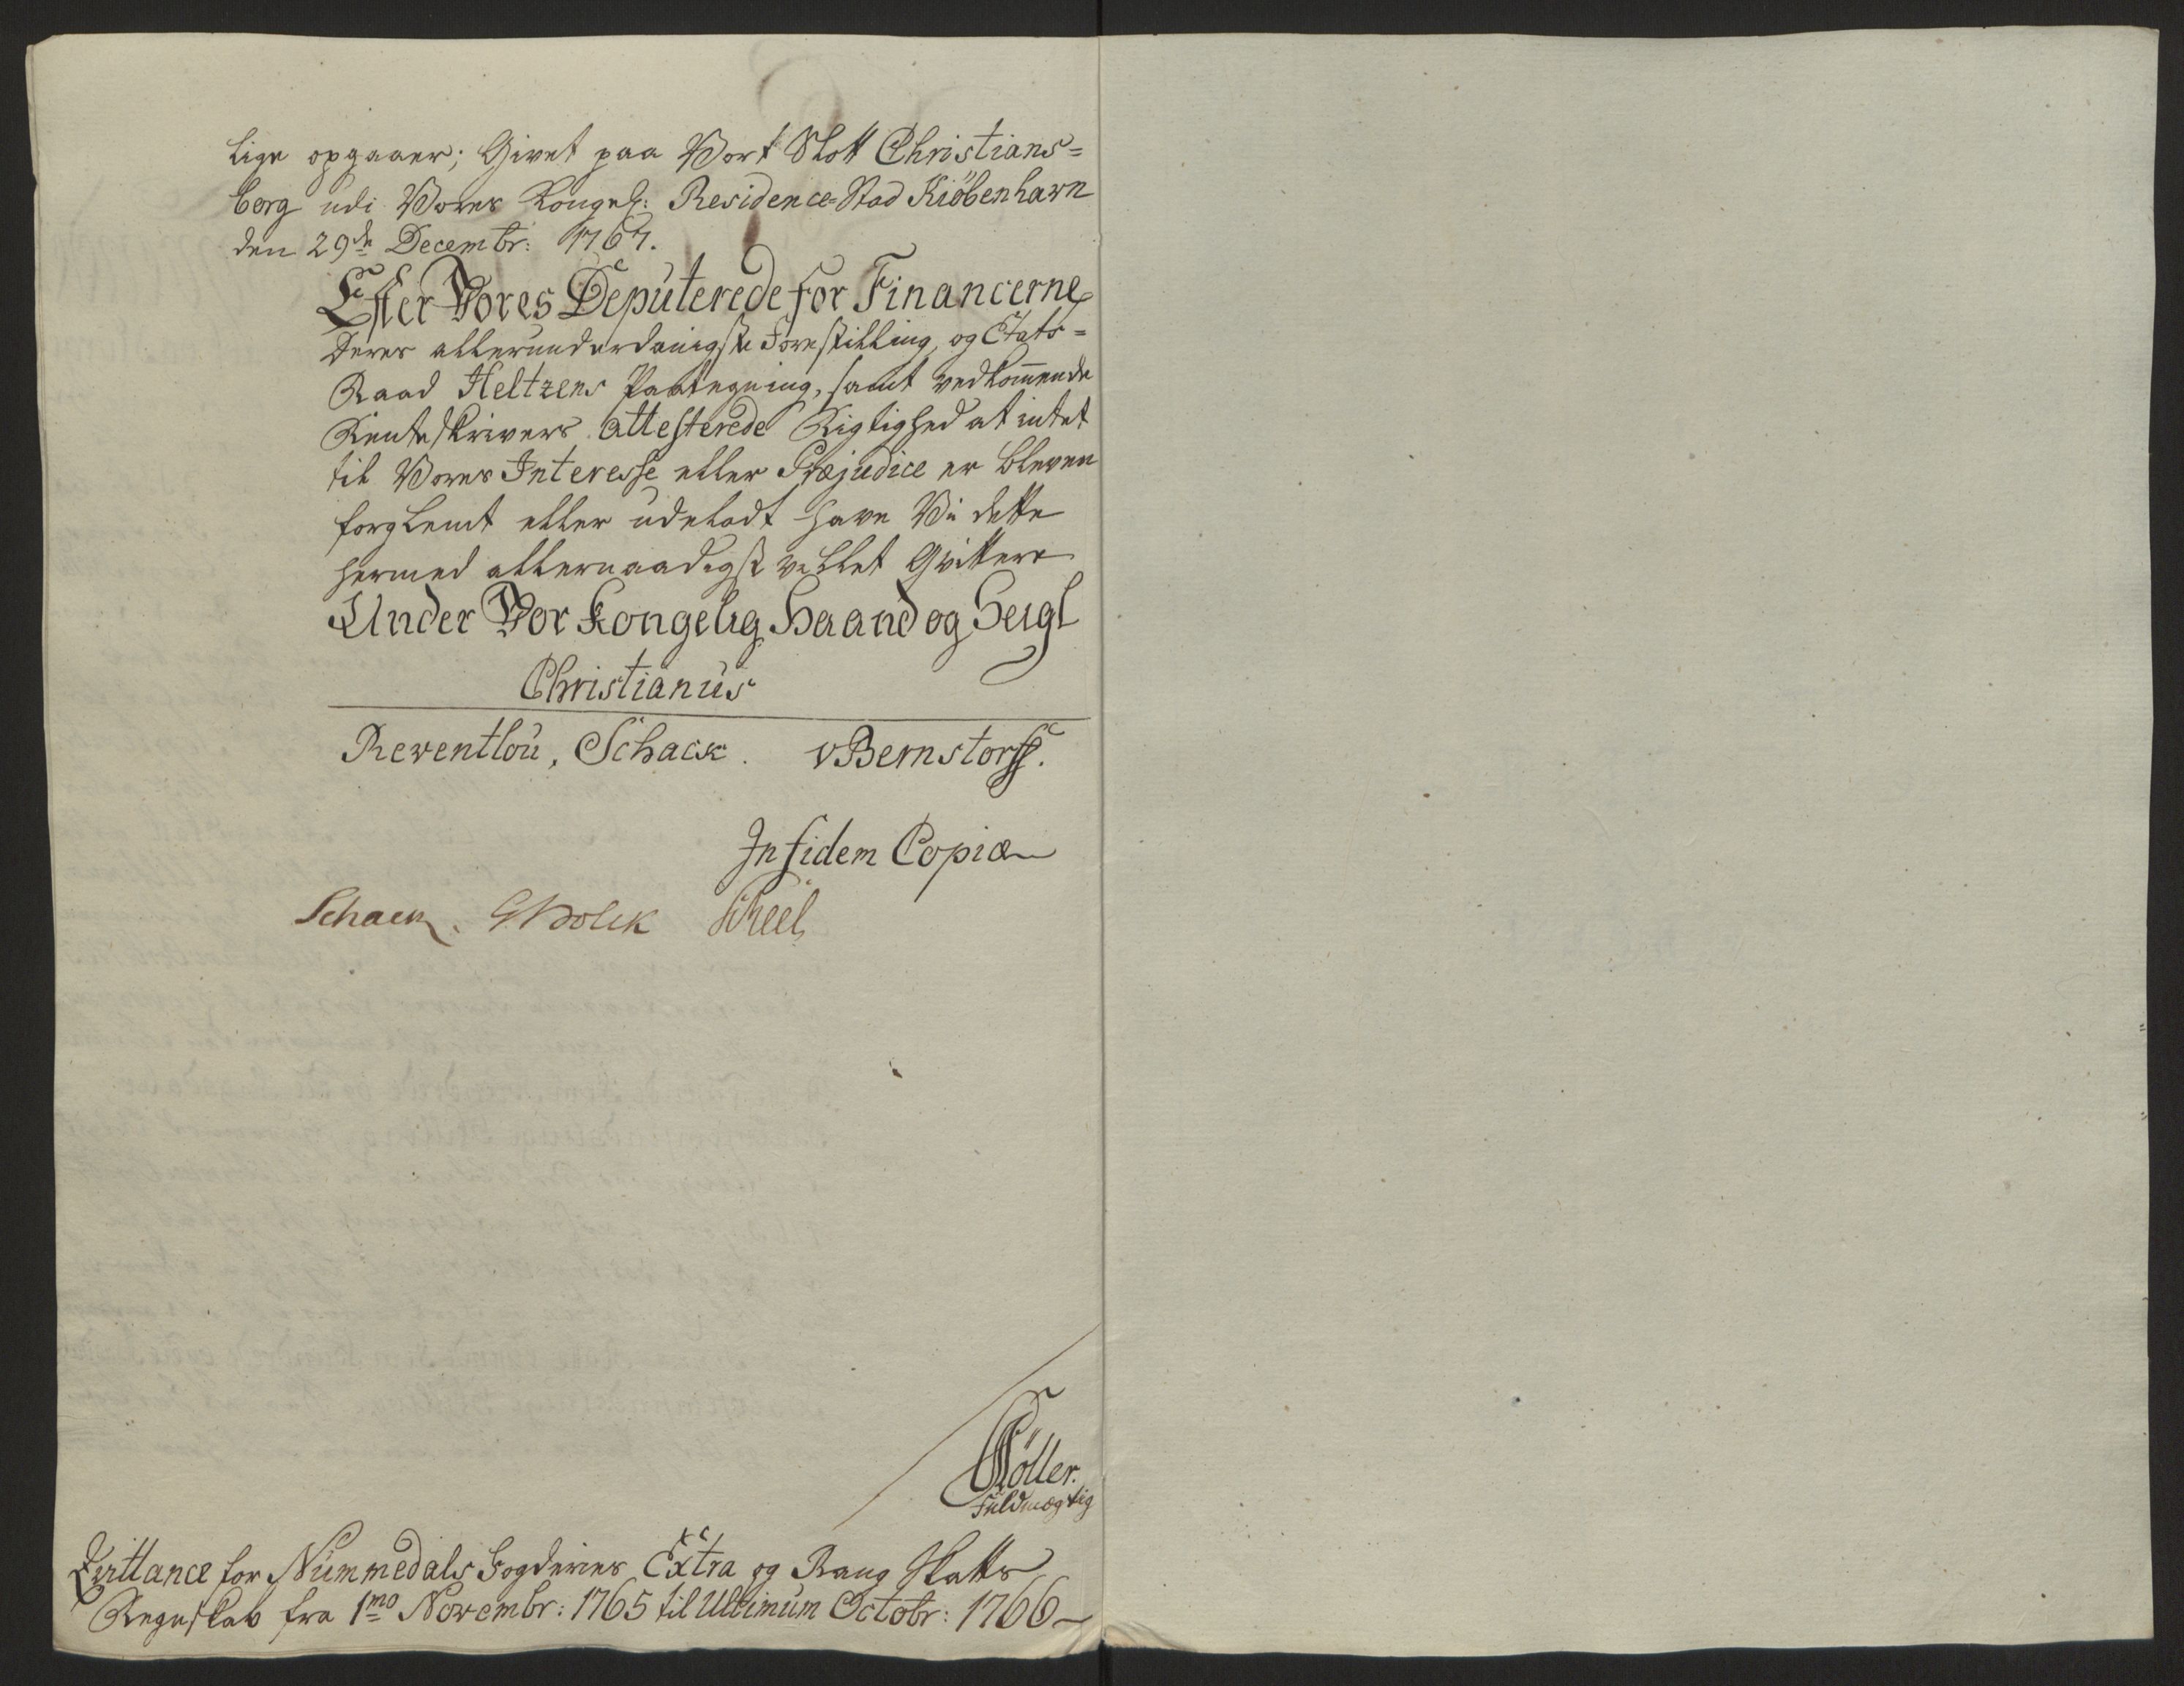 lige opgaaer; Givet paa Vort Slott Christians=
borg udi Vores Kongel: Residence-Stad Kiöbenhavn
den 29de Decembr: 1767.
Efter Vores Deputerede for Financerne
Deres allerunderdanigste Forestilling, og Etats=
Raad Heltzens Paategning, samt vedkommende
Renteskrivers attesterede Rigtighed at intet
til Vores Interesse eller Præjudice er bleven
forglemt eller udeladt have Vi dette
hermed allernaadigst villet Qvittere
Under Vor Kongelig Haand og Seigl
Christianus
Reventlou, Schack. v Bernstorff.
In fidem Copiæ
Schack. G Holck Scheel
Möller.
Fuldmægtig
Qvittance for Nummedals Fogderies Extra og Rang Skatts
Regnskab fra 1mo Novembr: 1765 til Ultimum Octobr: 1766